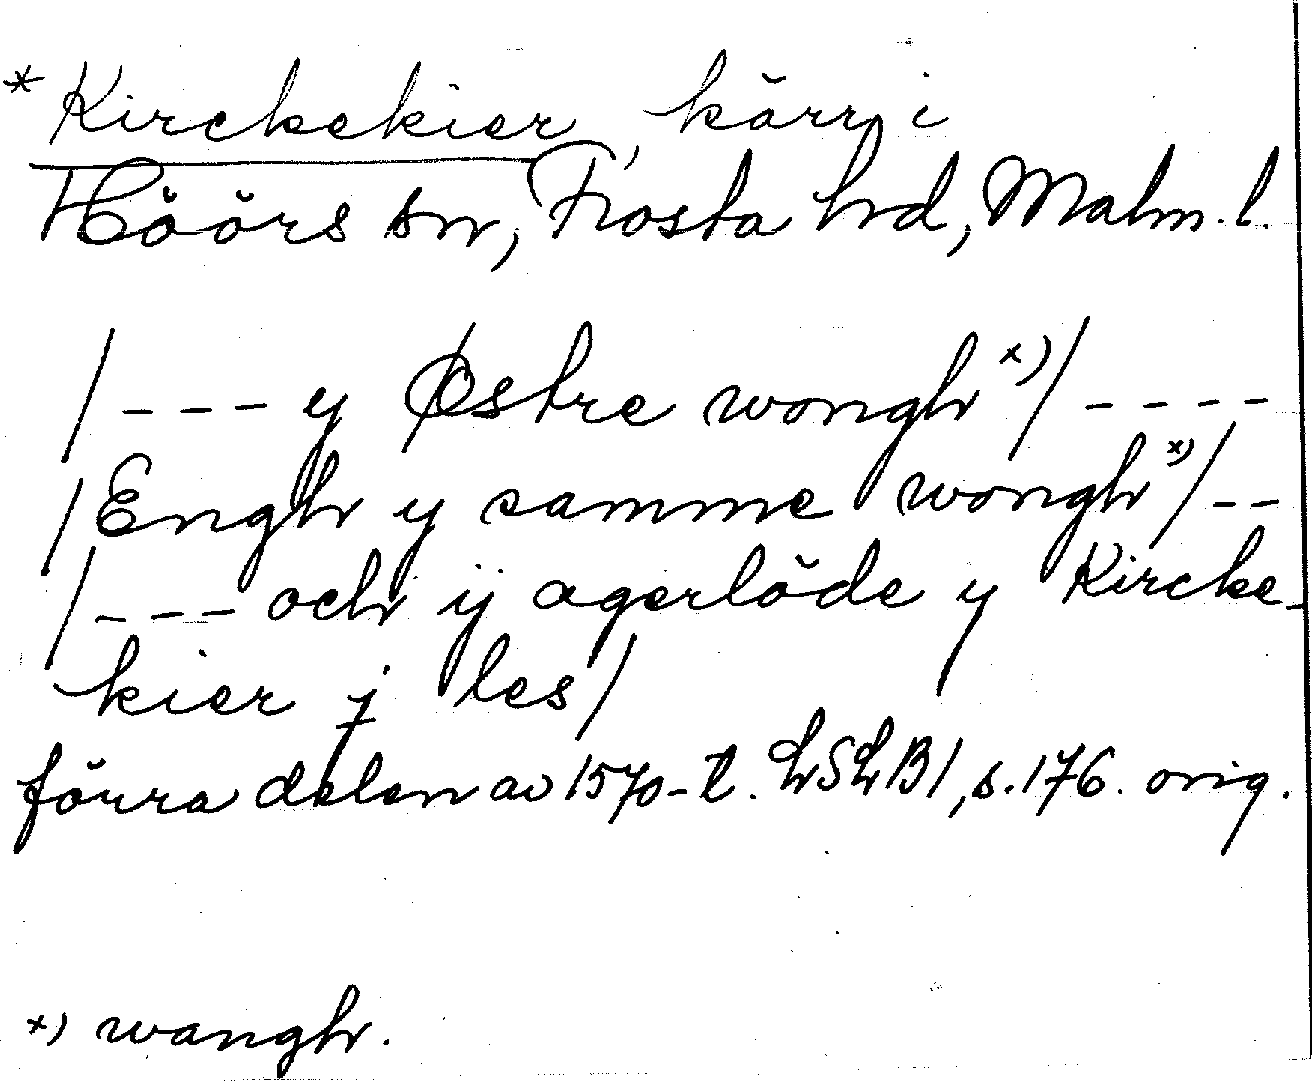 * Kirckekier, kärr i
Höörs sn, Frosta hrd, Malm. l.
/--- y Østre wongh x)/ ----
/Engh y samme wongh x)/--
/--- och ij agerlöde y Kircke-
kier j les/
förra delen av 1570-t. LSLB1, s.176. orig.
x) wangh.